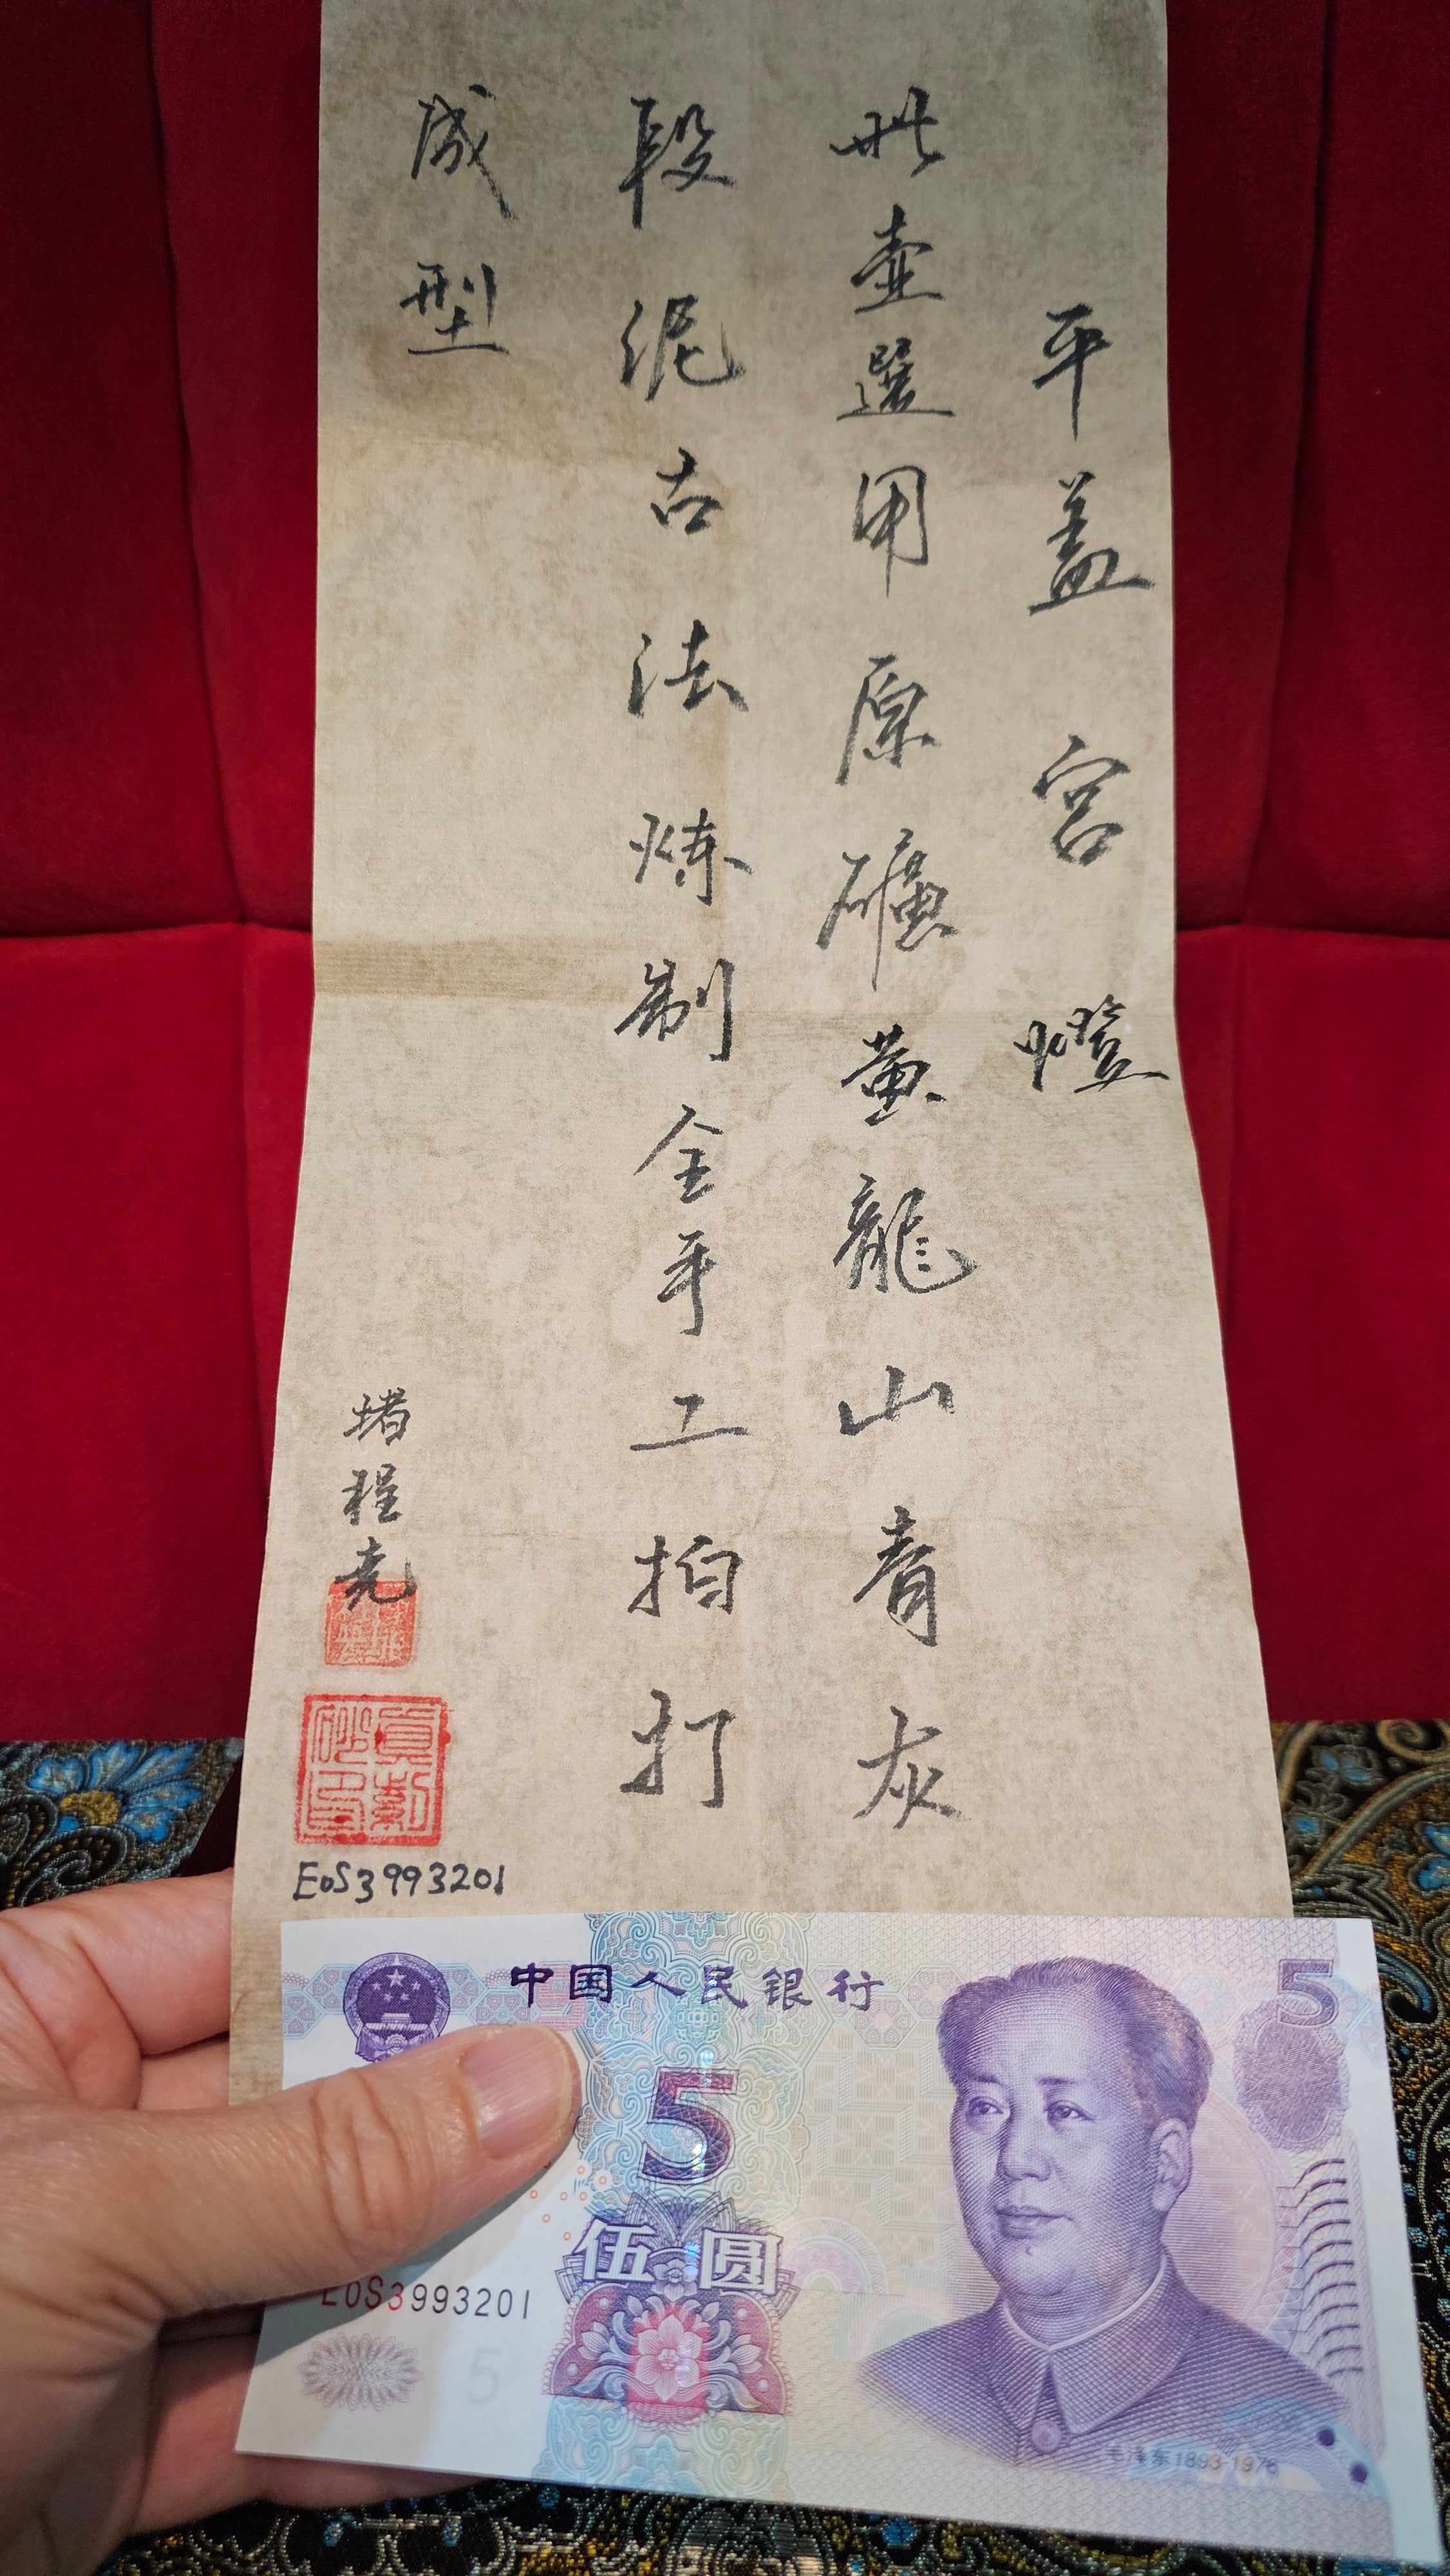 平盖宫燈
此壶選用原礦黄龍山青灰
段泥古法炼制全手工拍打
成型
堵程尧
E0S3993201
中国人民银行
5
5
伍圆
E0S3993201
5
毛泽东1893-1976